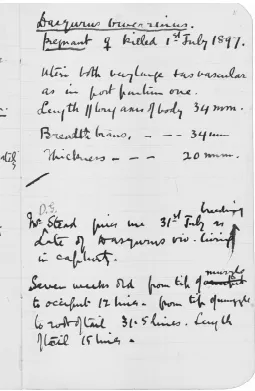 Dasyurus viverrinus.
Pregnant ♀ killed 1st July 1897.
Uteri both very large & as vascular
as in post partum one.
Length of long axis of body 34 mm.
Breadth — — 34 mm
Thickness — — — 20 mm.
D.G.
Mr Stead gives me 31st July as
breeding
date of Dasyurus viv. living
in captivity.
Seven weeks old from tip of
muzzle
to occiput 12 lines. from tip of muzzle
to root of tail 31.5 lines. Length
of tail 15 lines.